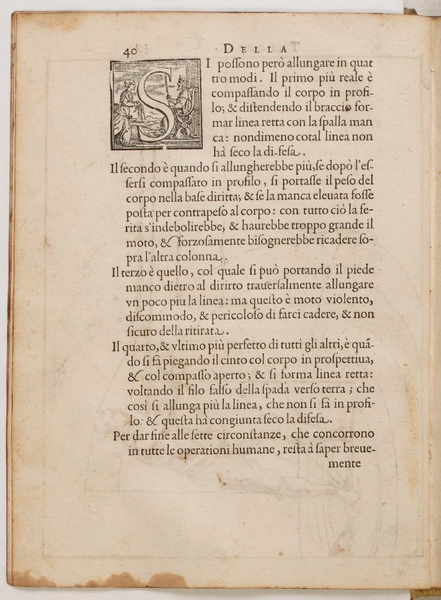 40 DELLA
SI possono però allungare in quat
tro modi. Il primo più reale è
compassando il corpo in profi-
lo; & distendendo il braccio for-
mar linea retta con la spalla man
ca: nondimeno cotal linea non
hà seco la difesa.
Il secondo è quando si allungherebbe più, se dopò l'es-
sersi compassato in profilo, si portasse il peso del
corpo nella base diritta; & se la manca eleuata fosse
posta per contrapeso al corpo: con tutto ciò la fe-
rita s'indebolirebbe, & haurebbe troppo grande il
moto, & forzosamente bisognerebbe ricadere so-
pra l'altra colonna.
Il terzo è quello, col quale si può portando il piede
manco dietro al dirirto trauersalmente allungare
vn poco più la linea: ma questo è moto violento,
discommodo, & pericoloso di farci cadere, & non
sicuro della ritirata.
Il quarto, & vltimo più perfetto di tutti gli altri, è quã-
do si fà piegando il cinto col corpo in prospettiua,
& col compasso aperto; & si forma linea retta:
voltando il filo falso della spada verso terra; che
così si allunga più la linea, che non si fà in profi-
lo: & questa hà congiunta seco la difesa.
Per dar fine alle sette circonstanze, che concorrono
in tutte le operationi humane, resta à saper breue-
mente